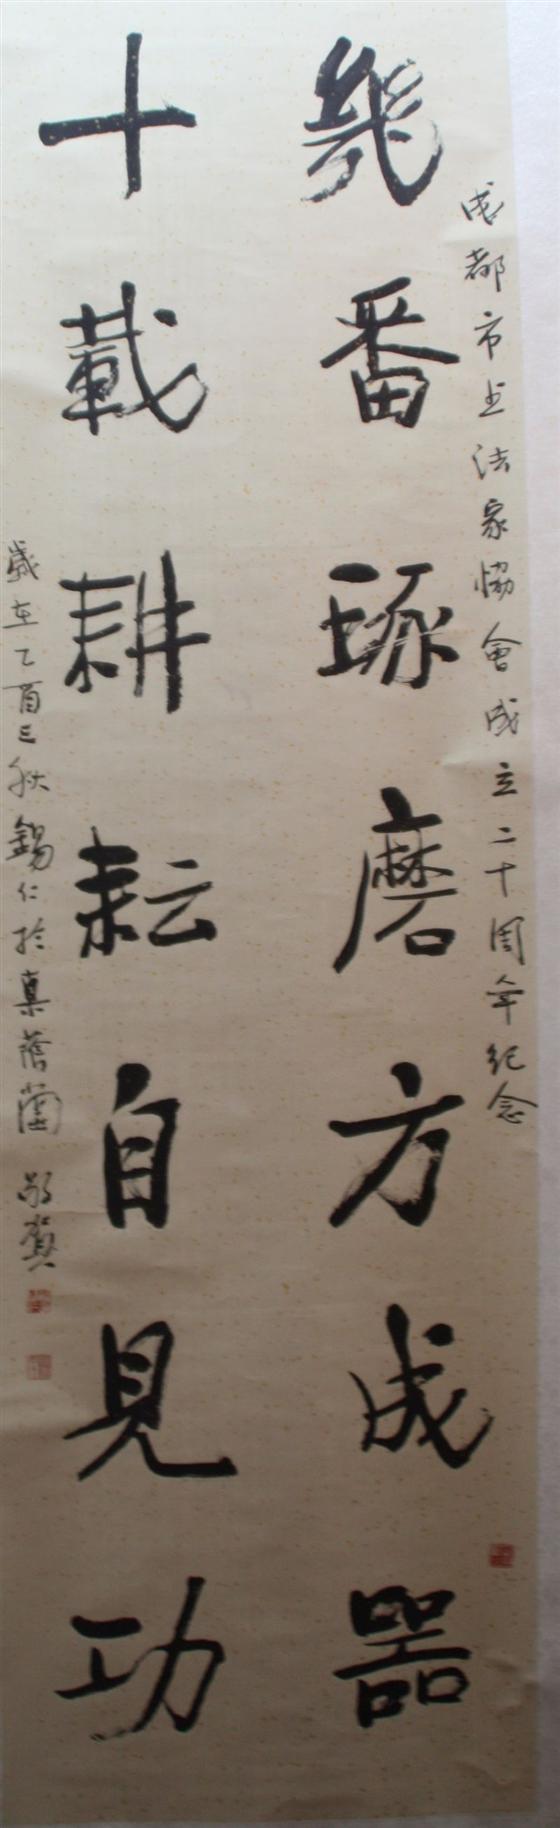 成都市书法家協會成立二十周年纪念
幾番琢磨方成器
十載耕耘自見功
歲在乙酉之秋錫仁於集蘆蘭敬賀